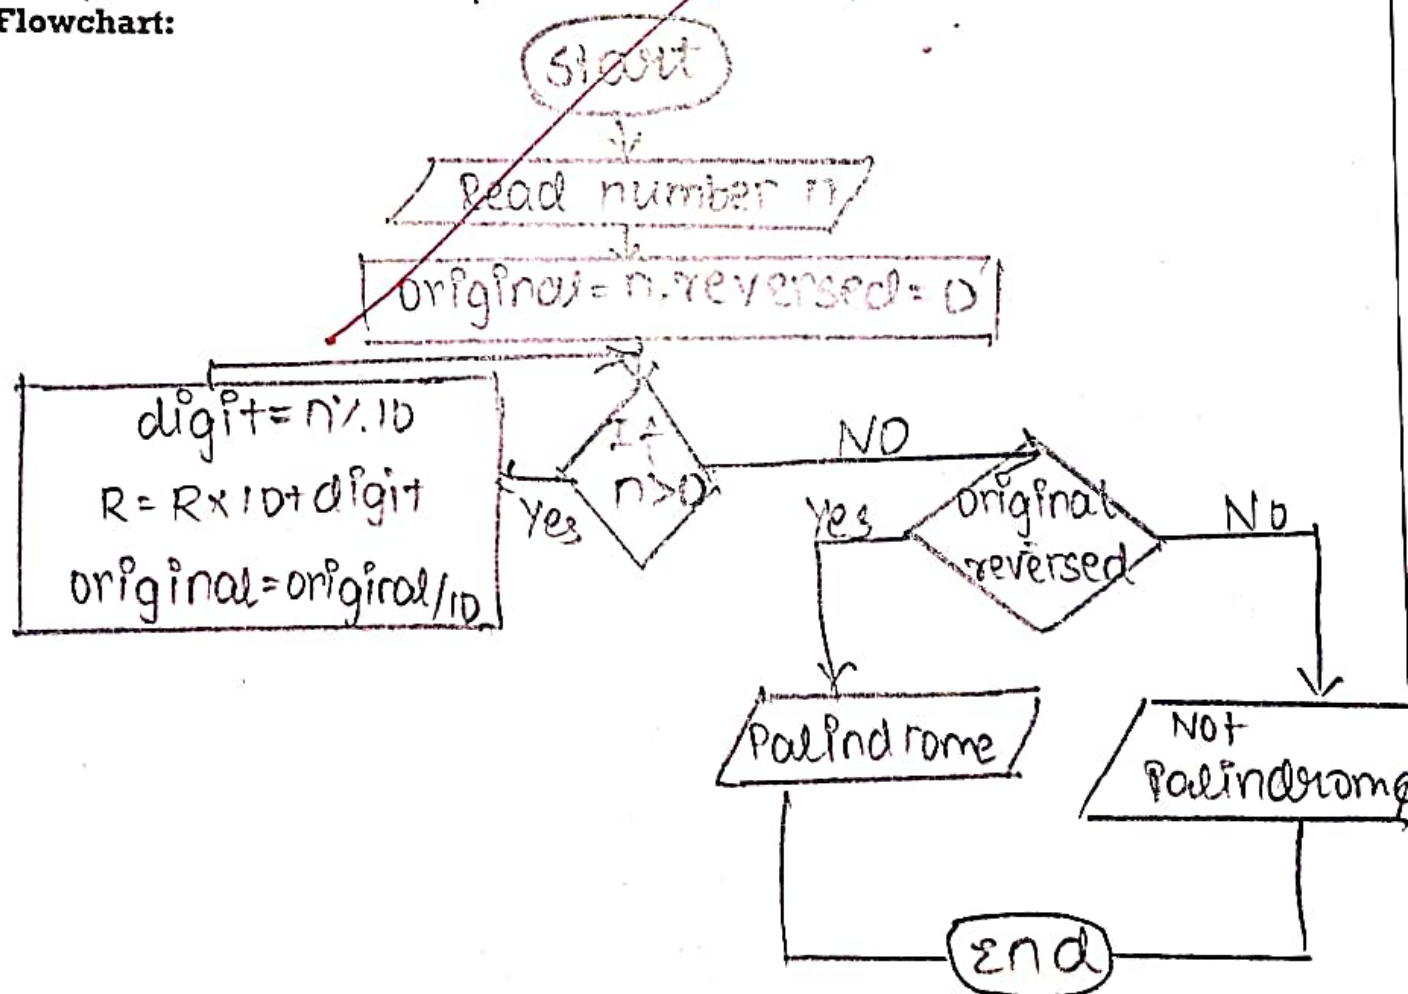 Flowchart:
Start
Read number n
original = n. reversed = 0
digit = n % 10
R = R x 10 + digit
original = original/10
If
n>0
Yes
NO
original
reversed
Yes
No
Palindrome
Not
Palindrome
End